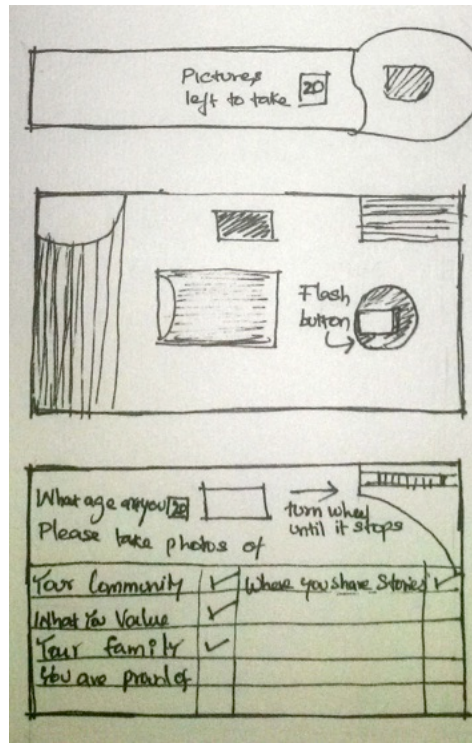 Pictures
left to take 20
Flash
button
What age are you 20
turn wheel
until it stops
Please take photos of
Your Community
Where you share stories
What You Value
Your family
You are proud of